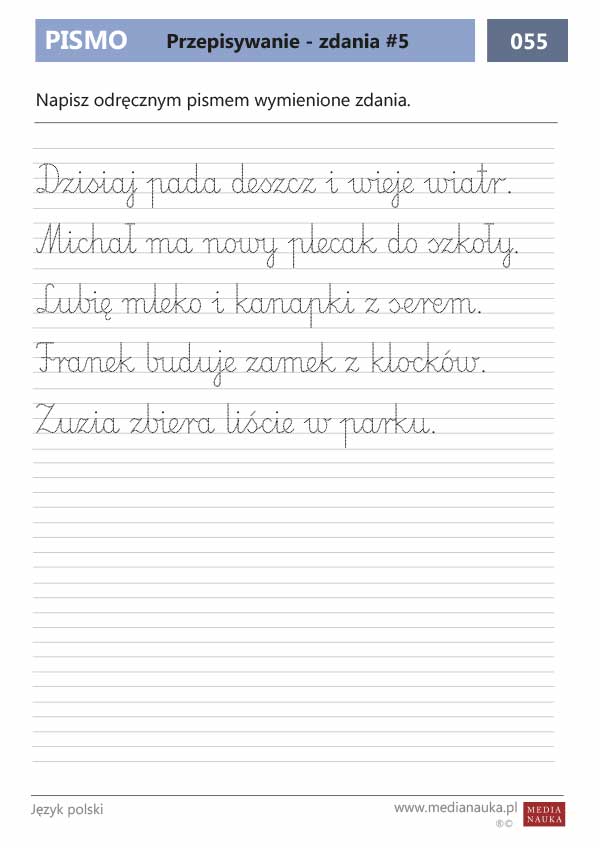 PISMO Przepisywanie - zdania #5 055
Napisz odręcznym pismem wymienione zdania.
Dzisiaj pada deszcz i wieje wiatr.
Michał ma nowy plecak do szkoły.
Lubię mleko i kanapki z serem.
Franek buduje zamek z klocków.
Zuzia zbiera liście w parku.
Język polski www.medianauka.pl MEDIA
®© NAUKA